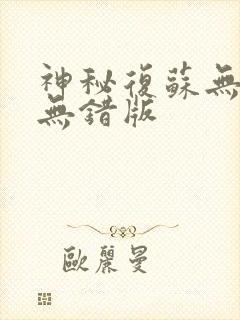 神秘復蘇無
無錯版
歐麗曼